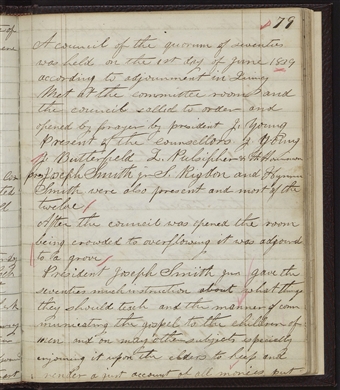 79
A council of the quorum of seventies
was held on the 1st day of June 1839
according to adjournment in Quincy
Met at the committee room and
the council called to order and
opened by prayer by president J. Young
Present of the counsellors J Young
J. Butterfield Z. Pulsipher &
Joseph Smith jr S. Rigdon and Hyrum
Smith were also present and most of the
twelve
After the council was opened the room
being crowded to overflowing it was adjornd
to a grove
President Joseph Smith jun gave the
seventies much instruction about what things
they should teach and the manner of com
municating the gospel to the children of
men and on many other subjects especially
enjoining it upon the elders to keep and
render a just account of all monies put